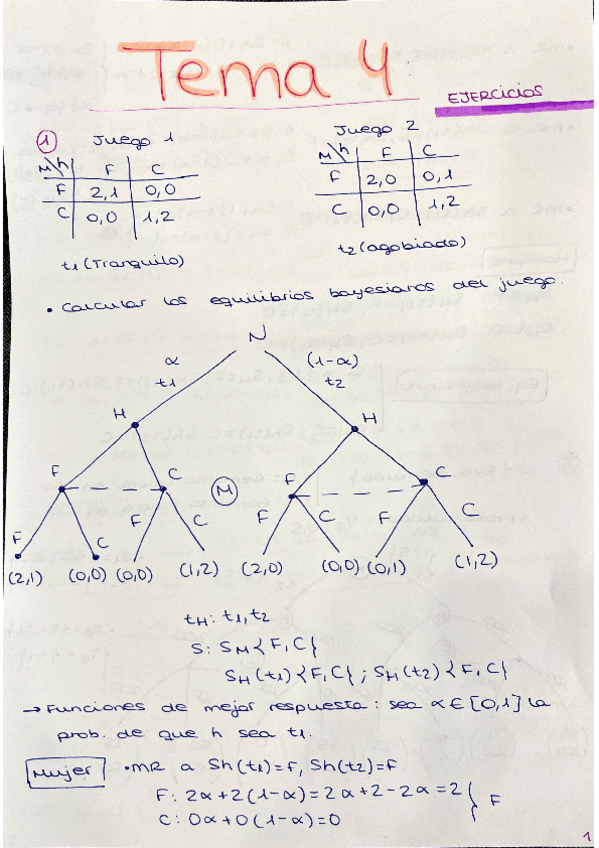 Tema 4
EJERCICIOS
1 Juego 1
M\h F C
F 2,1 0,0
C 0,0 1,2
t1 (Tranquilo)
Juego 2
M\h F C
F 2,0 0,1
C 0,0 1,2
t2 (agobiado)
• Calcular los equilibrios bayesianos del juego.
N
α (1-α)
t1 t2
H H
F C M F C
F C F C F C F C
(2,1) (0,0) (0,0) (1,2) (2,0) (0,0) (0,1) (1,2)
tH: t1, t2
S: SM {F, C}
SH (t1) {F, C} ; SH (t2) {F, C}
→ Funciones de mejor respuesta: sea α ∈ [0,1] la
prob. de que h sea t1.
Mujer • MR a Sh(t1)=F, Sh(t2)=F
F: 2α+2(1-α)=2α+2-2α=2 } F
C: 0α+0(1-α)=0
1